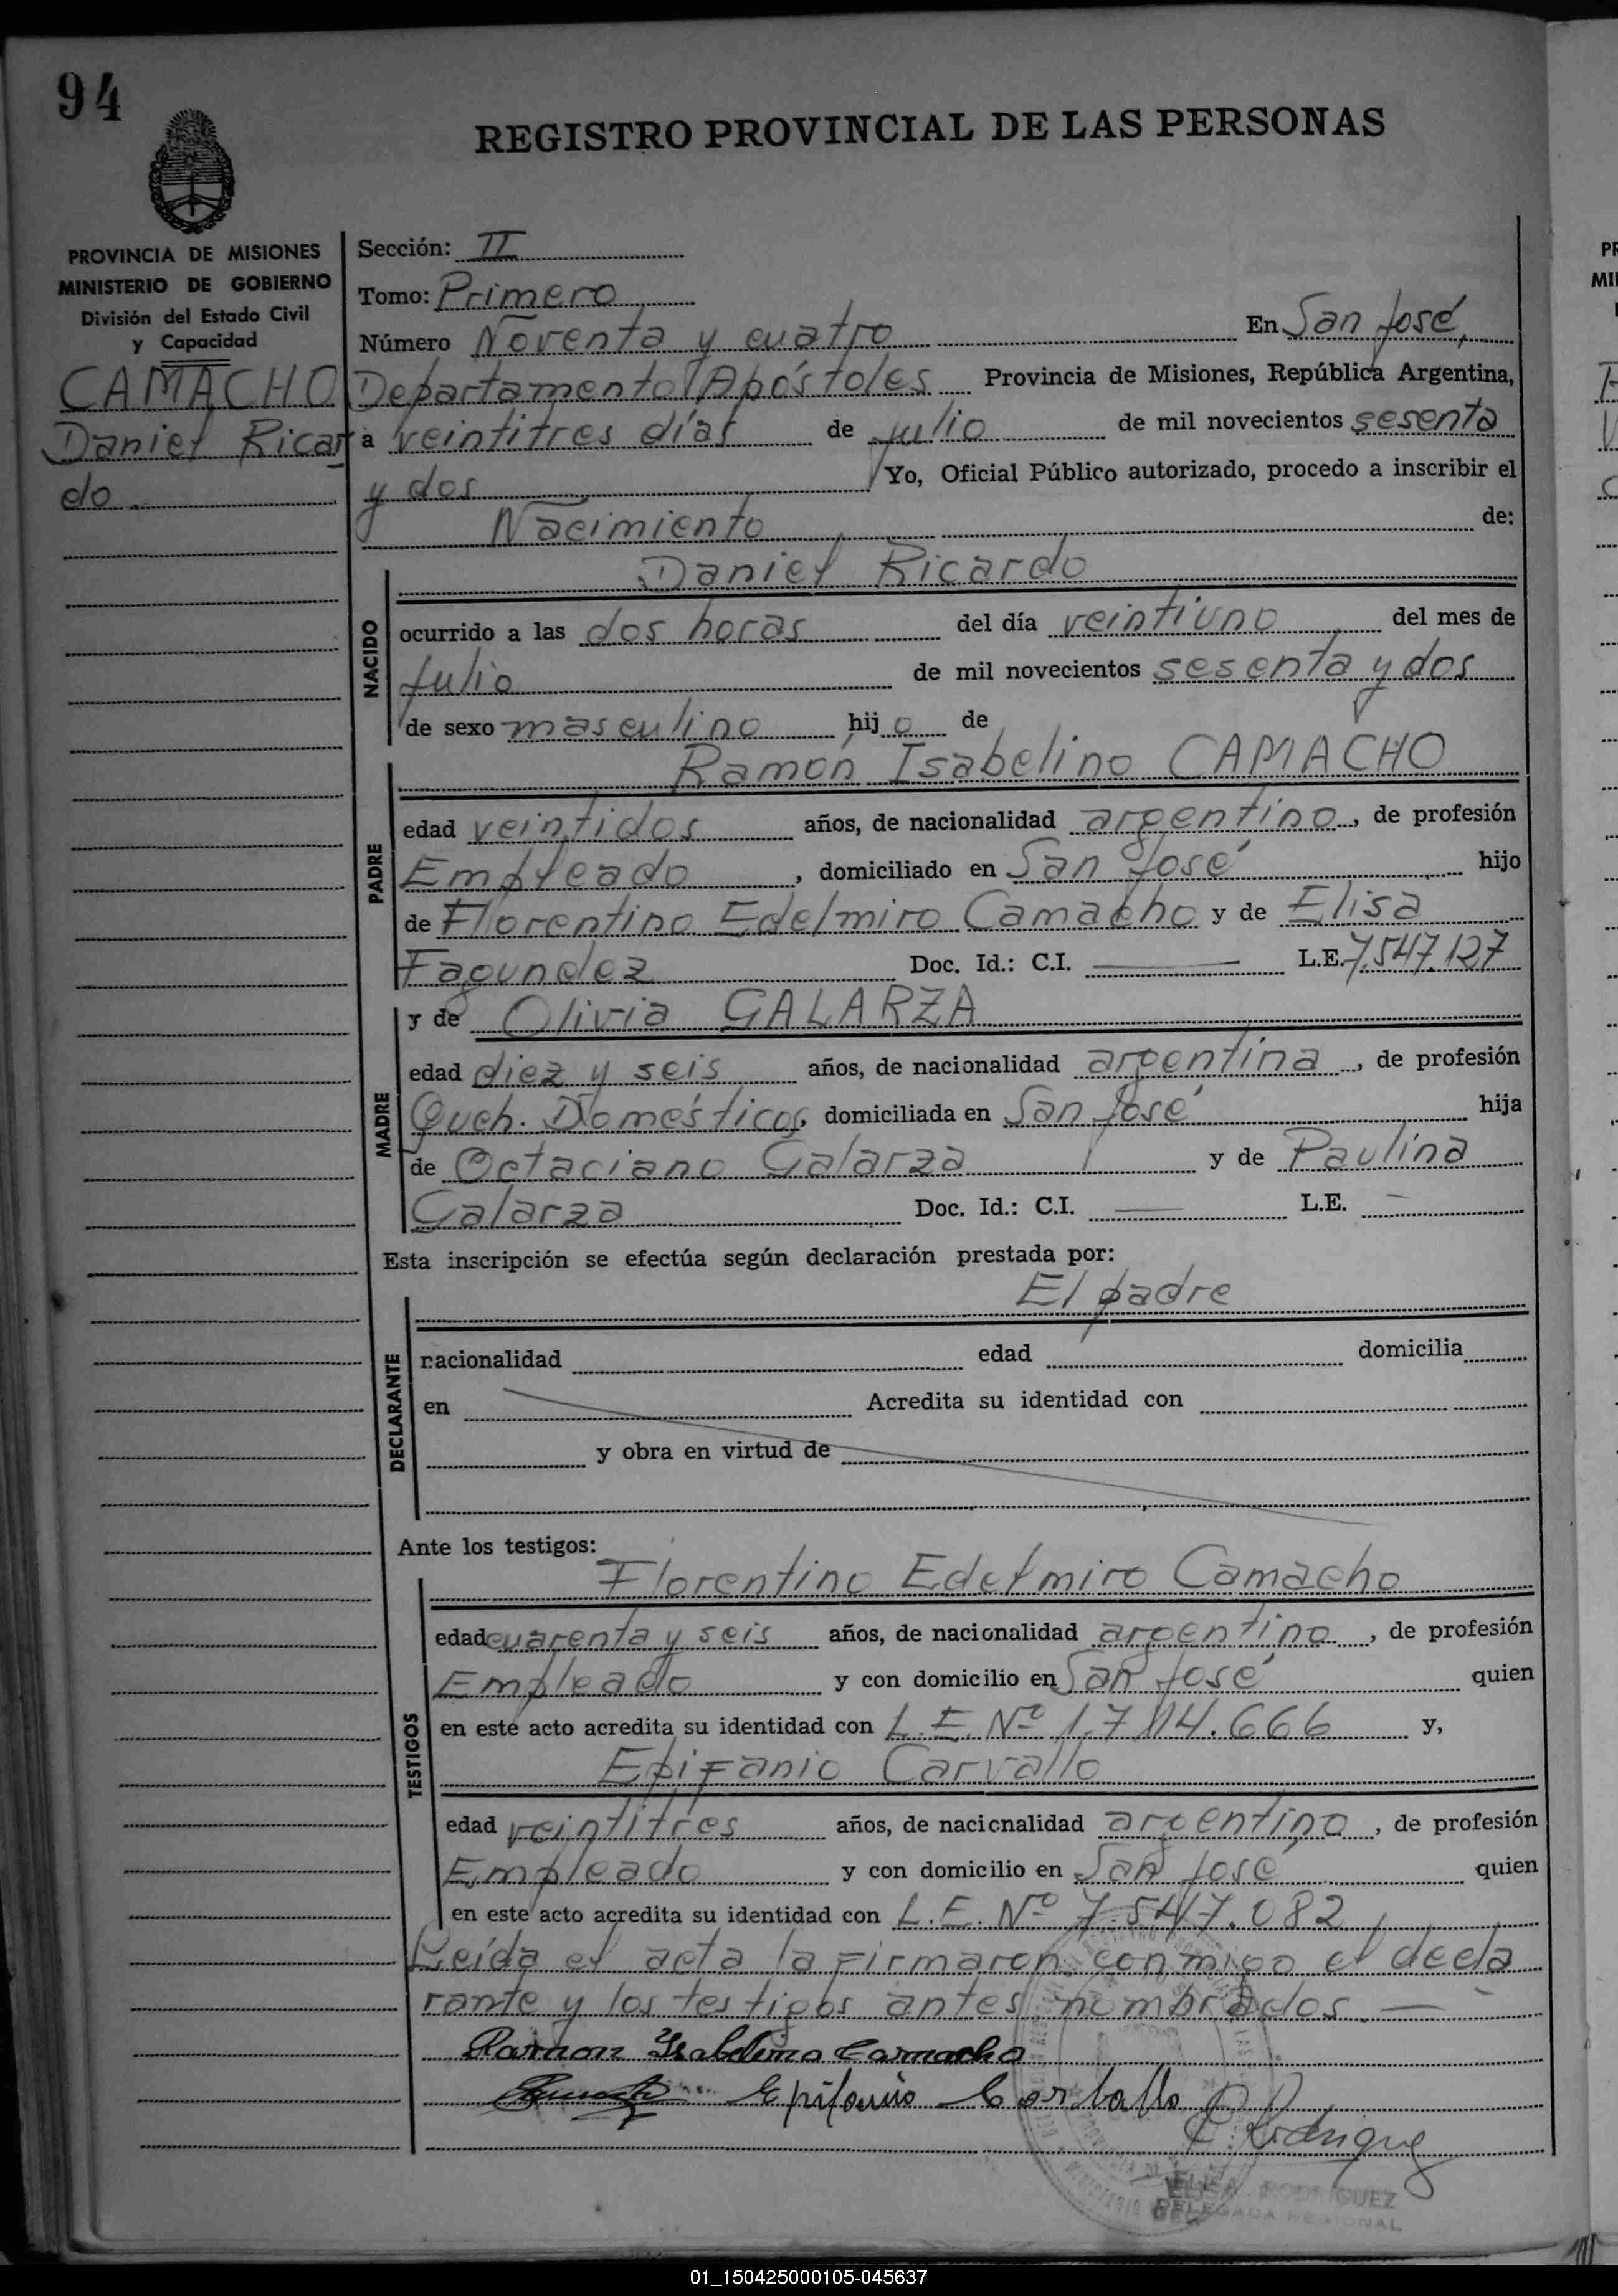 94
REGISTRO PROVINCIAL DE LAS PERSONAS
PROVINCIA DE MISIONES
MINISTERIO DE GOBIERNO
División del Estado Civil
y Capacidad
CAMACHO
Daniel Ricar
do
Sección: II
Tomo: Primero
Número Noventa y cuatro En San José,
Departamento Apóstoles Provincia de Misiones, República Argentina,
a veintitres días de Julio de mil novecientos sesenta
y dos Yo, Oficial Público autorizado, procedo a inscribir el
Nacimiento de:
NACIDO
Daniel Ricardo
ocurrido a las dos horas del día veintiuno del mes de
Julio de mil novecientos sesenta y dos
de sexo masculino hijo de
PADRE
Ramón Isabelino CAMACHO
edad veintidos años, de nacionalidad argentino, de profesión
Empleado, domiciliado en San José hijo
de Florentino Edelmiro Camacho y de Elisa
Fagundez Doc. Id.: C.I. — L.E. 7.547.127
MADRE
y de Olivia GALARZA
edad diez y seis años, de nacionalidad argentina, de profesión
Queh. Domésticos, domiciliada en San José hija
de Octaciano Galarza y de Paulina
Galarza Doc. Id.: C.I. — L.E. —
Esta inscripción se efectúa según declaración prestada por:
DECLARANTE
El padre
nacionalidad edad domicilia
en Acredita su identidad con
y obra en virtud de
Ante los testigos:
TESTIGOS
Florentino Edelmiro Camacho
edad cuarenta y seis años, de nacionalidad argentino, de profesión
Empleado y con domicilio en San José quien
en este acto acredita su identidad con L.E. Nº 1.714.666 y,
Epifanio Carvallo
edad veintitres años, de nacionalidad argentino, de profesión
Empleado y con domicilio en San José quien
en este acto acredita su identidad con L.E. Nº 7.547.082
Leída el acta la firmaron conmigo el decla
rante y los testigos antes nombrados —
Ramon Isabelino Camacho
Epifanio Carballo
E. Rodriguez
ELISA RODRIGUEZ
DELEGADA REGIONAL
01_150425000105-045637